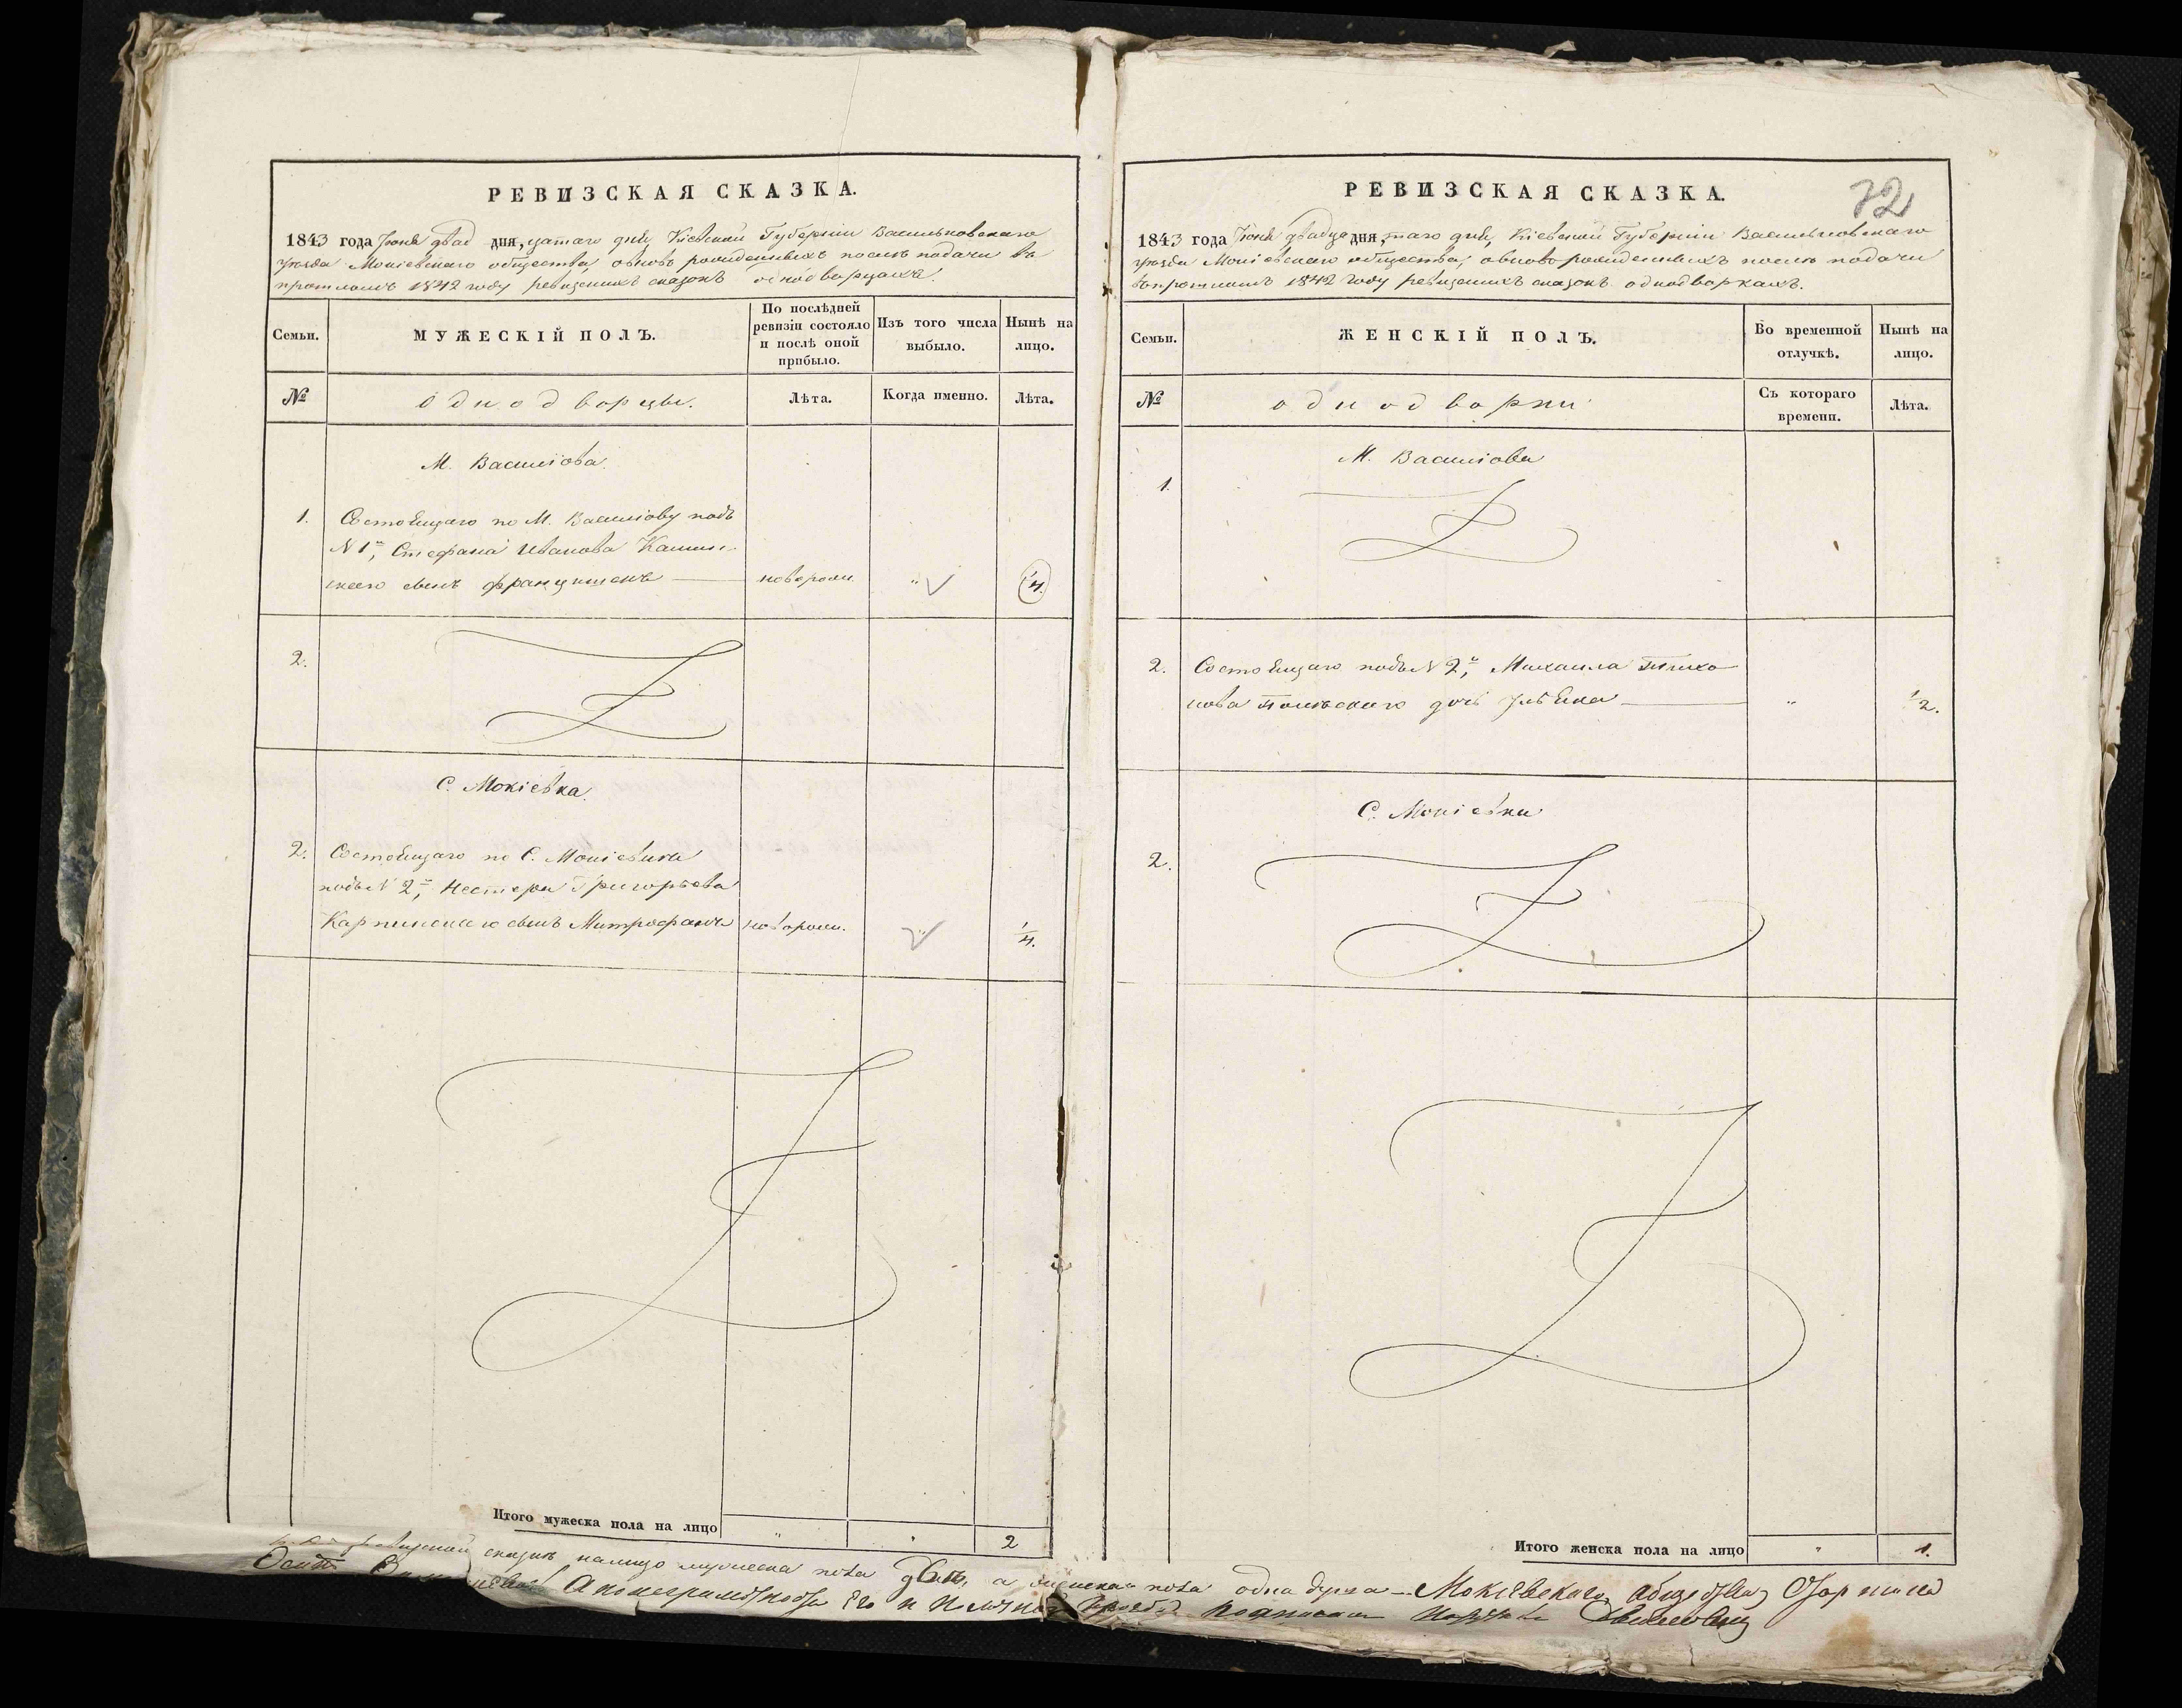 РЕВИЗСКАЯ СКАЗКА.
1843 года Іюня двад дня, цатаго дня, Кіевской Губерніи Васильковскаго
уезда Мокіевскаго общества, вновь рожденныхъ после подачи въ
прошломъ 1842 году ревизскихъ сказокъ однодворцахъ.
Семьи.
МУЖЕСКІЙ ПОЛЪ.
По послѣдней ревизіи состояло и послѣ оной прибыло.
Изъ того числа выбыло.
Нынѣ на лицо.
№
однодворцы.
Лѣта.
Когда именно.
Лѣта.
М. Василіова.
1. Состоящаго по М. Василіову подъ
№ 1, Стефана Иванова
сынъ Францишекъ новорож. "
2.
С. Мокіевка.
2. Состоящаго по С. Мокіевки
подъ № 2, Нестера Григорьева
Карпинскаго сынъ Митрофанъ новорож.
Итого мужеска пола на лицо " " 2
РЕВИЗСКАЯ СКАЗКА.
72
1843 года Іюня двадца дня, таго дня, Кіевской Губерніи Васильковскаго
уезда Мокіевскаго общества, вновь рожденныхъ после подачи
въ прошломъ 1842 году ревизскихъ сказокъ однодворкахъ.
Семьи.
ЖЕНСКІЙ ПОЛЪ.
Во временной отлучкѣ.
Нынѣ на лицо.
№
однодворки
Съ котораго времени.
Лѣта.
М. Василіова
1.
2. Состоящаго подъ № 2, Михаила
дочь " 1/2.
С. Мокіевки
2.
Итого женска пола на лицо " 1.
ревизской сказки налицо мужеска пола две, а женска пола одна душа Мокіевскаго общества Старшина